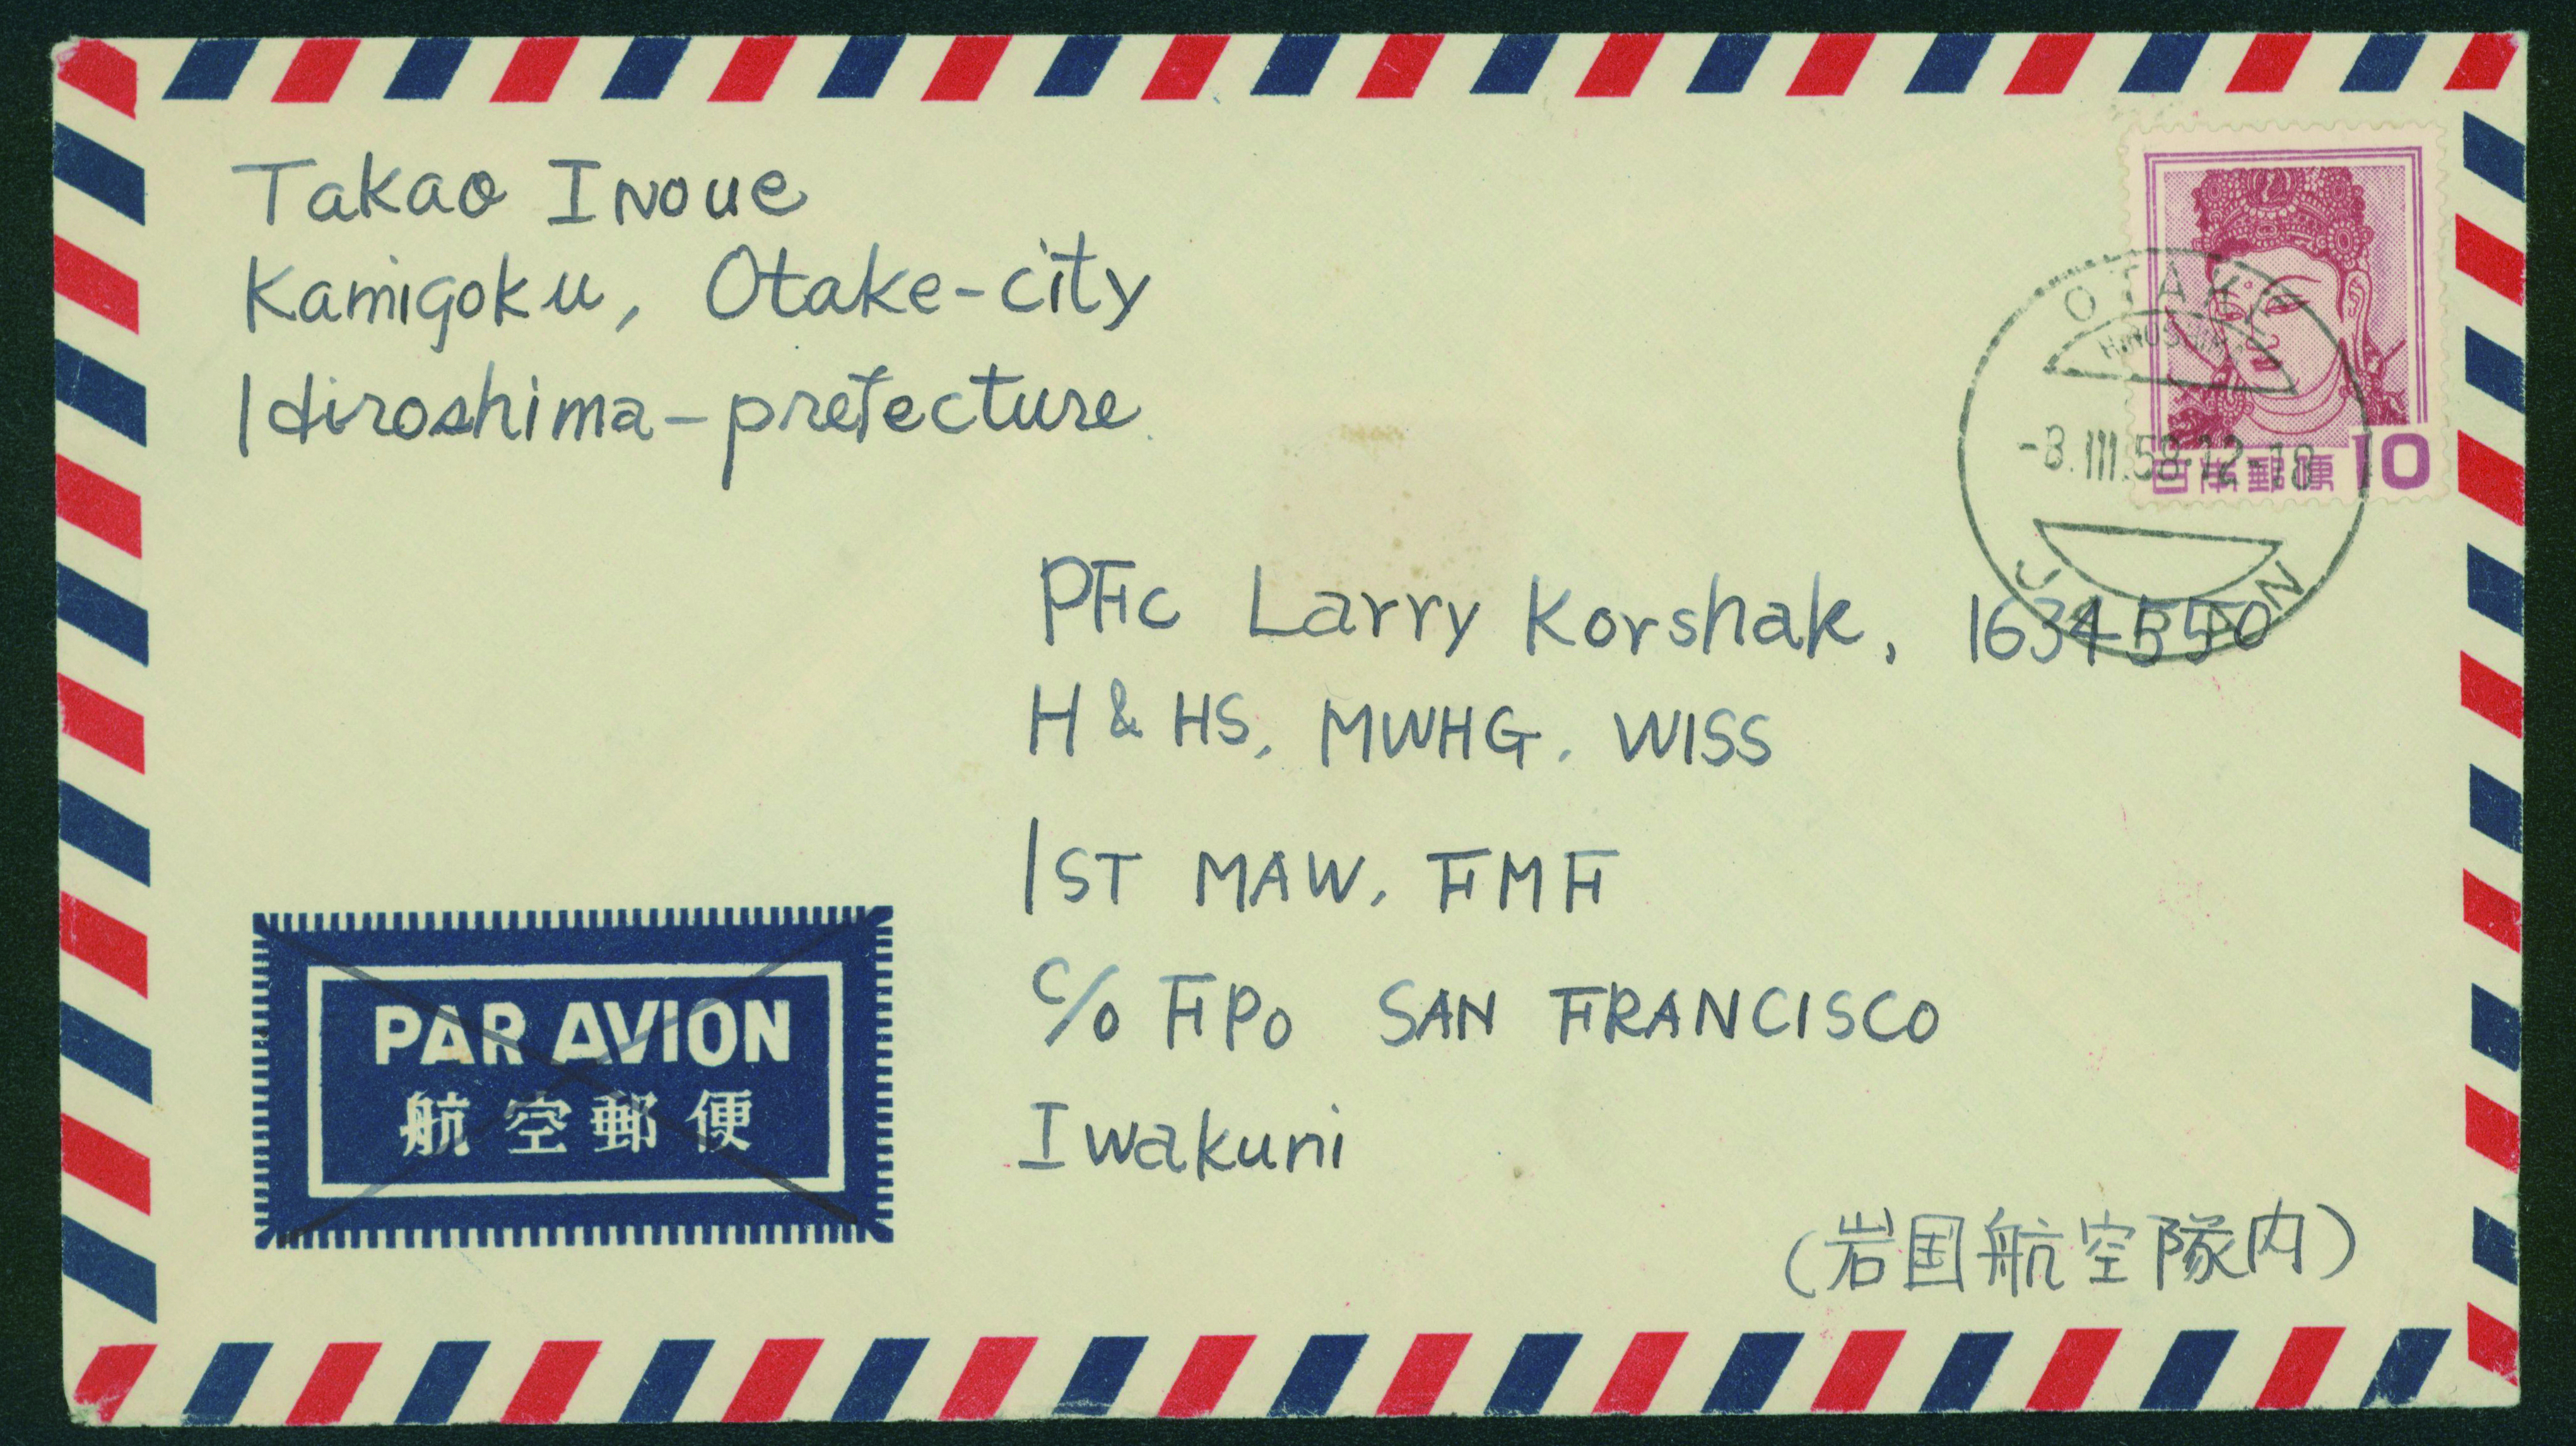 Takao Inoue
Kamigoku, Otake-city
Hiroshima-prefecture
OTAKE
HIROSHIMA
-8.III.58.12-18
JAPAN
日本郵便 10
PFc Larry Korshak, 1634550
H & HS, MWHG. WISS
1ST MAW, FMF
c/o FPO SAN FRANCISCO
Iwakuni
(岩国航空隊内)
PAR AVION
航空郵便